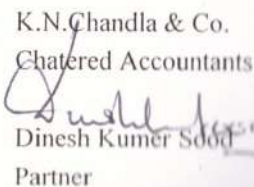 K.N.Chandla & Co.
Chatered Accountants
Dinesh Kumer Sood
Partner